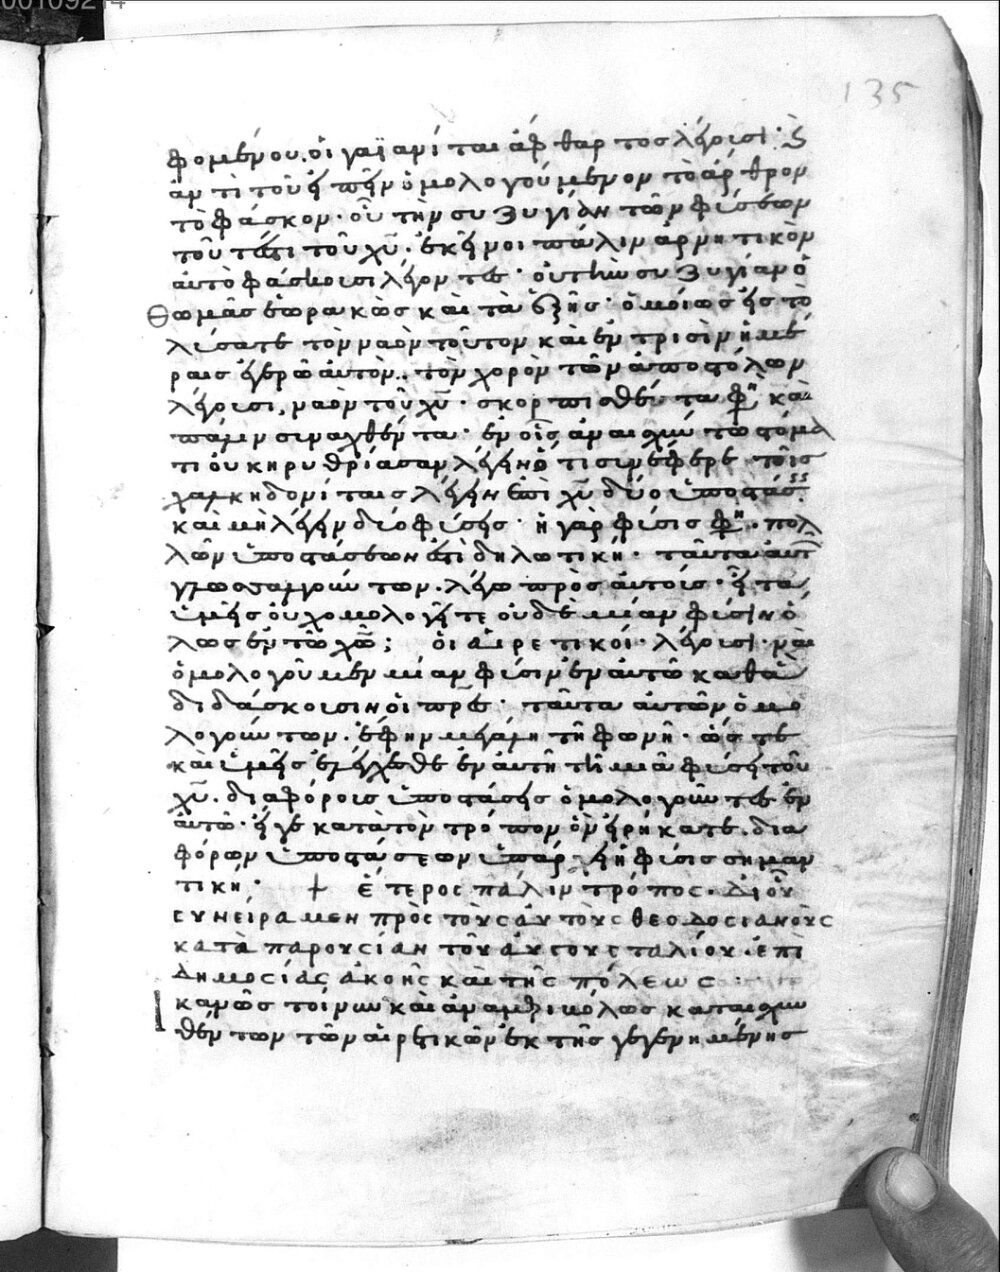 00109214
135
φομένου. οἱ γαϊανίται ἄφθαρτος λέγουσι· καὶ
ἀντὶ τοῦ εἰπεῖν ὁμολογούμενον τὸ ἄρθρον
τὸ φάσκον· οὐ τὴν συζυγίαν τῶν φύσεων
τοῦ χυ· ἐκεῖνοι πάλιν ἀρνητικὸν
αὐτὸ φάσκουσι λέγοντες· οὐ τὴν συζυγίαν ὁ
θωμᾶς ἑωρακὼς καὶ τὰ ἑξῆς· ὁμοίως εἰς τὸ
λύσατε τὸν ναὸν τοῦτον καὶ ἐν τρισὶν ἡμέ
ραις ἐγερῶ αὐτόν. τὸν χορὸν τῶν ἀποστόλων
λέγουσι, ναὸν τοῦ χυ· σκορπισθέντα φη καὶ
πάλιν συναχθέντα· ἐν οἷς ἀναισχύντω στόμα
τι οὐκ ἠρυθρίασαν λέγειν ὅτι συνέφερε τοῖς
χαλκηδονίταις λέγειν ἐπὶ χυ δύο ὑποστάσεις
καὶ μὴ λέγειν δύο φύσεις· ἡ γὰρ φύσις φη· πολ
λῶν ὑποστάσεων ἐστὶ δηλωτική· ταῦτα αὐτῶν
λέγω πρὸς αὐτούς· εἶτα
ὑμεῖς οὐχ ὁμολογεῖτε οὐδὲ μίαν φύσιν ὁ
λως ἐν τῶ χω; οἱ αἱρετικοί· λέγουσι· ναὶ
ὁμολογοῦμεν μίαν φύσιν ἐν αὐτῶ καθὰ
διδάσκουσιν οἱ πρες· ταῦτα αὐτῶν ὁμο
λογούντων. ἔφην μεγάλη τῆ φωνῆ· ὥστε
καὶ ὑμεῖς ἐλέγχεσθε ἐν αὐτῆ τῆ μιᾶ φύσει τοῦ
χυ. διαφόρους ὑποστάσεις ὁμολογοῦντες ἐν
αὐτῶ· εἴγε κατὰ τὸν τρόπον ὃν εἰρήκατε. δια
φόρων ὑποστάσεων ὑπάρχει ἡ φύσις σημαν
τική· + ἕτερος πάλιν τρόπος· δι οὗ
συνείραμεν πρὸς τοὺς αὐτοὺς θεοδοσιανοὺς
κατὰ παρουσίαν τοῦ αὐγουσταλίου· ἐπὶ
δημοσίας ἀκοῆς καὶ τῆς πόλεως·
καλῶς τοίνυν καὶ ἀναμφιβόλως καταισχυν
θέντων τῶν αἱρετικῶν ἐκ τῆς γεγενημένης